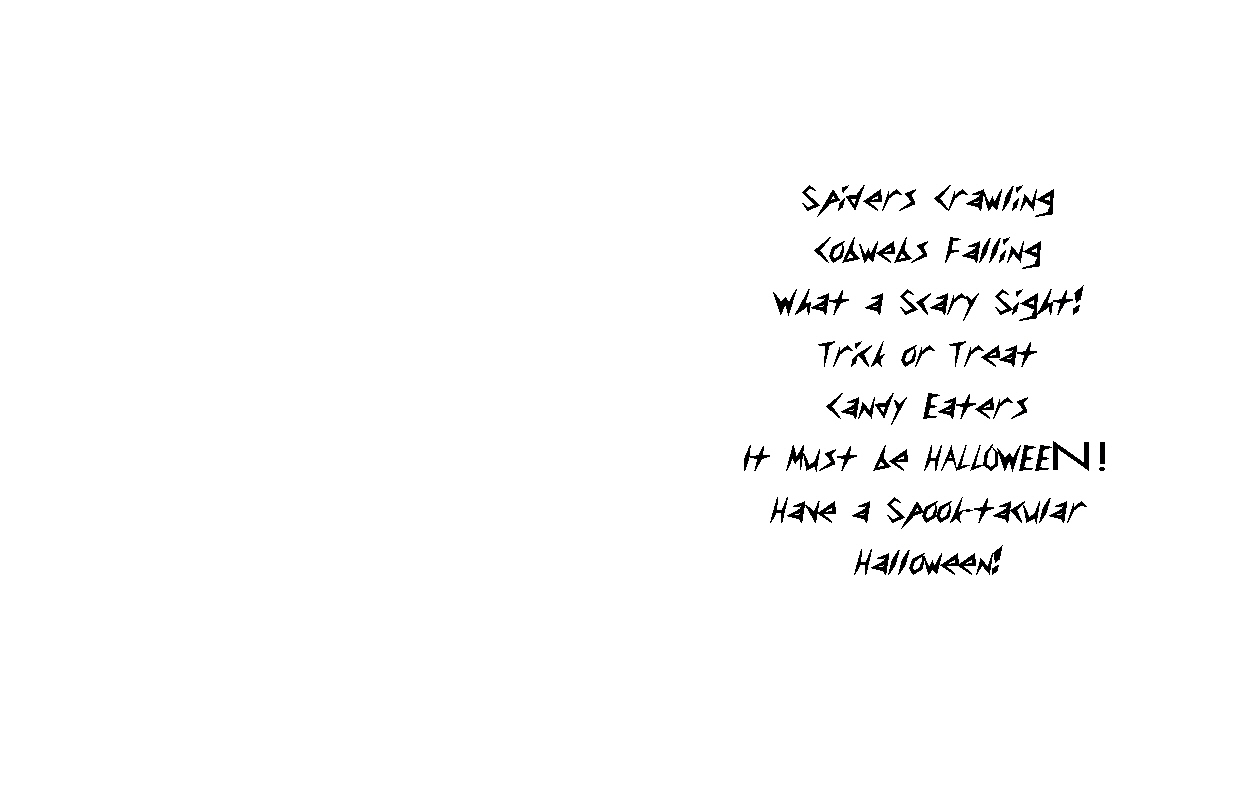 Spiders Crawling
Cobwebs Falling
What a Scary Sight!
Trick or Treat
Candy Eaters
It Must be HALLOWEEN!
Have a Spook-tacular
Halloween!